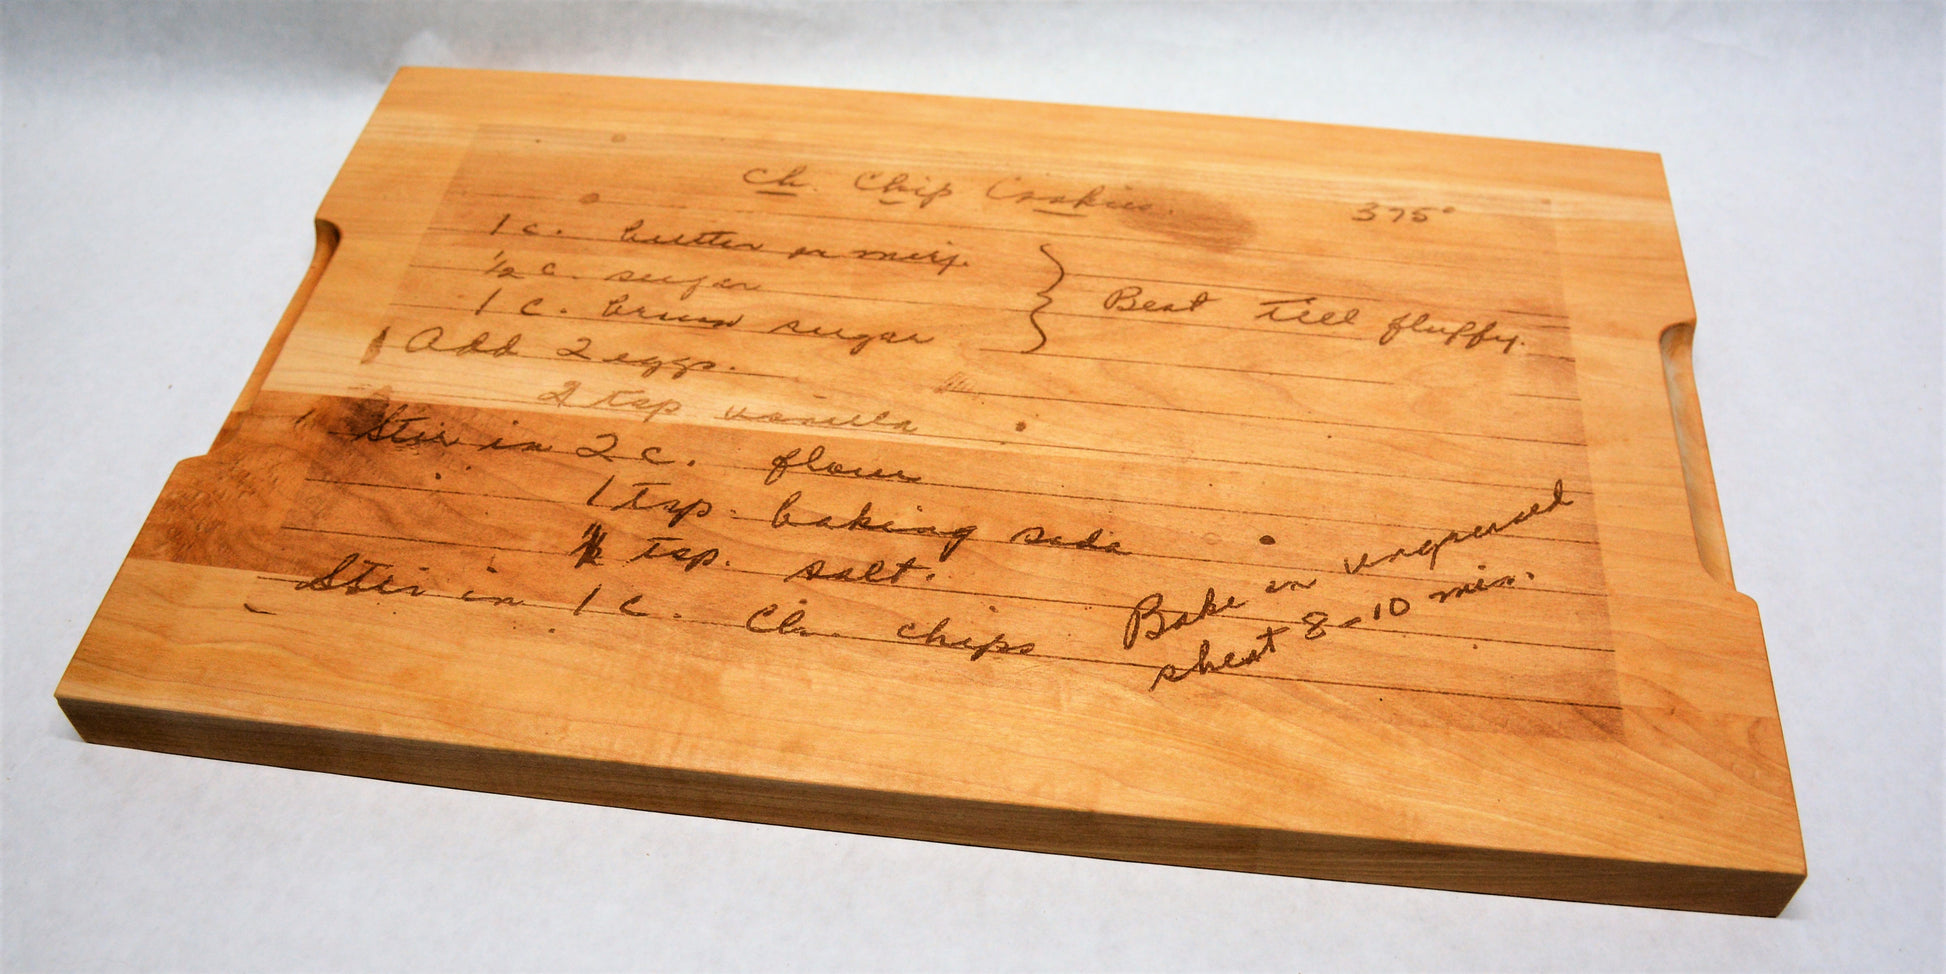 Ch. Chip Cookies. 375°
1 c. butter or marg.
½ c. sugar
1 c. brown sugar
Beat till fluffy.
Add 2 eggs.
2 tsp vanilla
Stir in 2 c. flour
1 tsp. baking soda
tsp. salt.
Stir in 1 c. Ch. chips
Bake on ungreased
sheet 8-10 min.